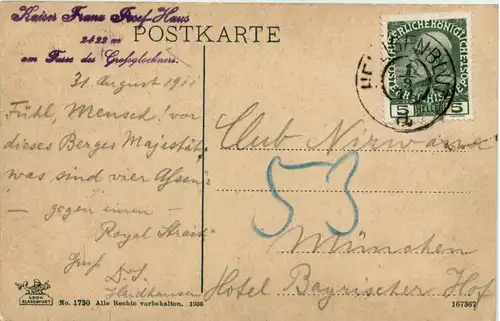 Kaiser Franz Josef-Haus
2422 m
am Fuss des Großglockners.
POSTKARTE
31 August 1911
Fühl, Mensch! vor
dieses Berges Majestät
was sind vier Assen
— gegen einen —
Royal
Gruß
Haidhausen
Club Nirwana
53
München
Hotel Bayrischer Hof
KAISERLICHE KÖNIGLICHE
5 HELLER 5
HEILIGENBLUT
LEON
KLAGENFURT
No. 1730 Alle Rechte vorbehalten. 1908
167367